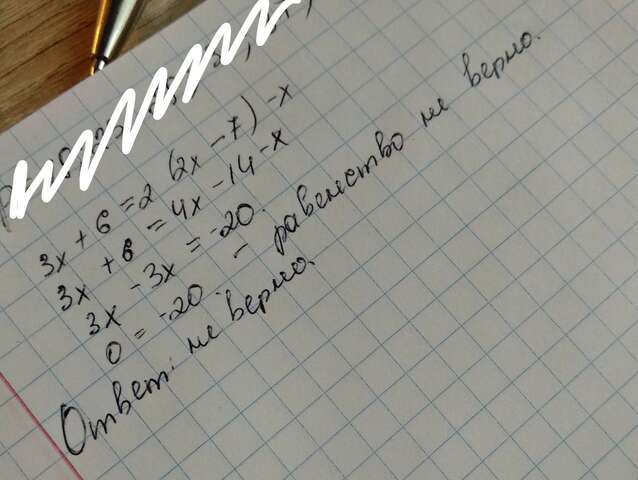 3x + 6 = 2 (2x - 7) - x
3x + 6 = 4x - 14 - x
3x - 3x = -20
0 = -20. - равенство не верно.
Ответ: не верно.